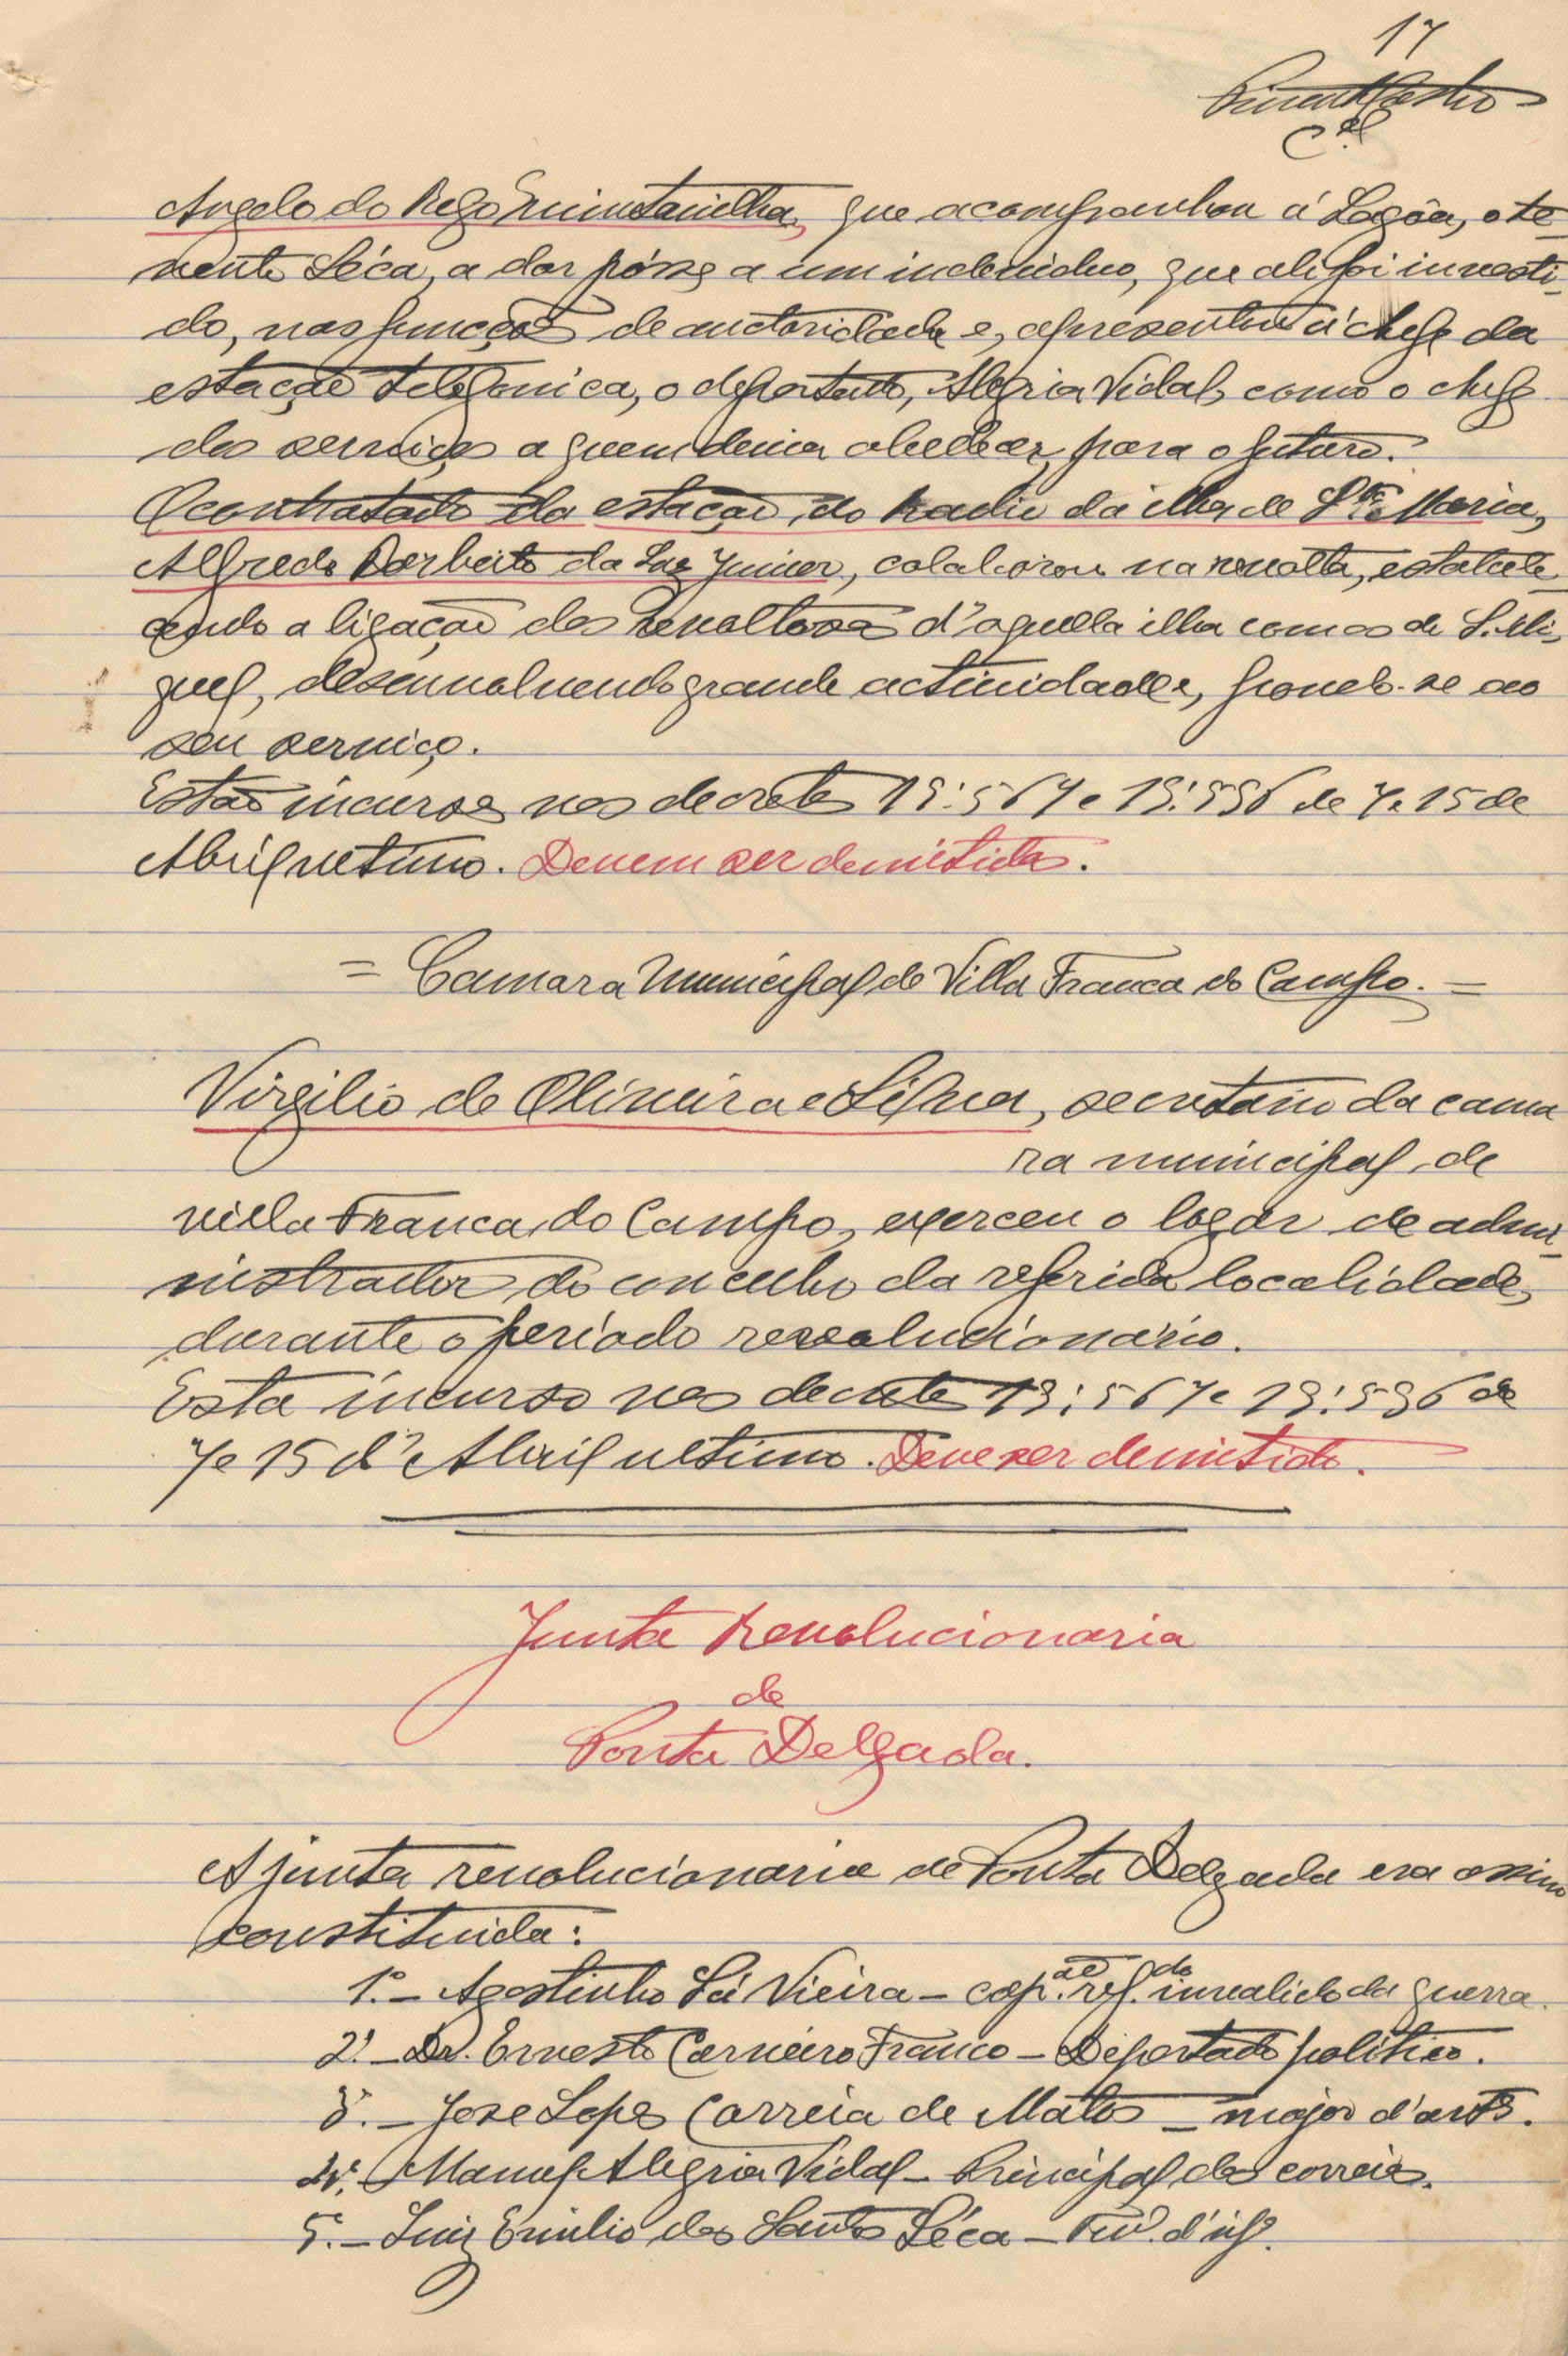 17
Angelo do Rego Quintanilha, que acompanhou á Lagôa, o te-
nente Séca, a dar pósse a um individuo, que ali foi investi-
do, nas funções de auctoridade e, apresentou á chefe da
estação telefonica, o deportado, Alegria Vidal, como o chefe
dos serviços a quem devia obedecer, para o futuro.
O contratado da estação, do Radio da ilha de Sta. Maria,
Alfredo Barbeito da Luz Junior, colaborou na revolta, estabele-
cendo a ligação dos revoltosos d'aquella ilha com os de S. Mi-
guel, desenvolvendo grande actividade, pondo-se ao
seu serviço.
Estão incursos nos decretos 19:567 e 19:596 de 7 e 15 de
Abril ultimo. Devem ser demitidos.
= Camara Municipal de Villa Franca do Campo. =
Virgilio de Oliveira e Silva, secretario da cama
ra municipal, de
villa Franca, do Campo, exerceu o logar de admi-
nistrador do concelho da referida localidade,
durante o periodo revolucionário.
Esta incurso nos decretos 19:567 e 19:596 de
7 e 15 d'Abril ultimo. Deve ser demitido.
Junta Revolucionaria
de
Ponta Delgada.
A junta revolucionaria de Ponta Delgada era assim
constituida:
1.º - Agostinho Sá Vieira - cap. ref.do invalido da guerra.
2.º - Dr. Ernesto Carneiro Franco - Deportado politico.
3.º - Jose Lopes Correia de Matos - major d'art.
4.º - Manuel Alegria Vidal - Principal dos correios.
5.º - Luiz Emilio dos Santos Séca - Ten. d'inf.